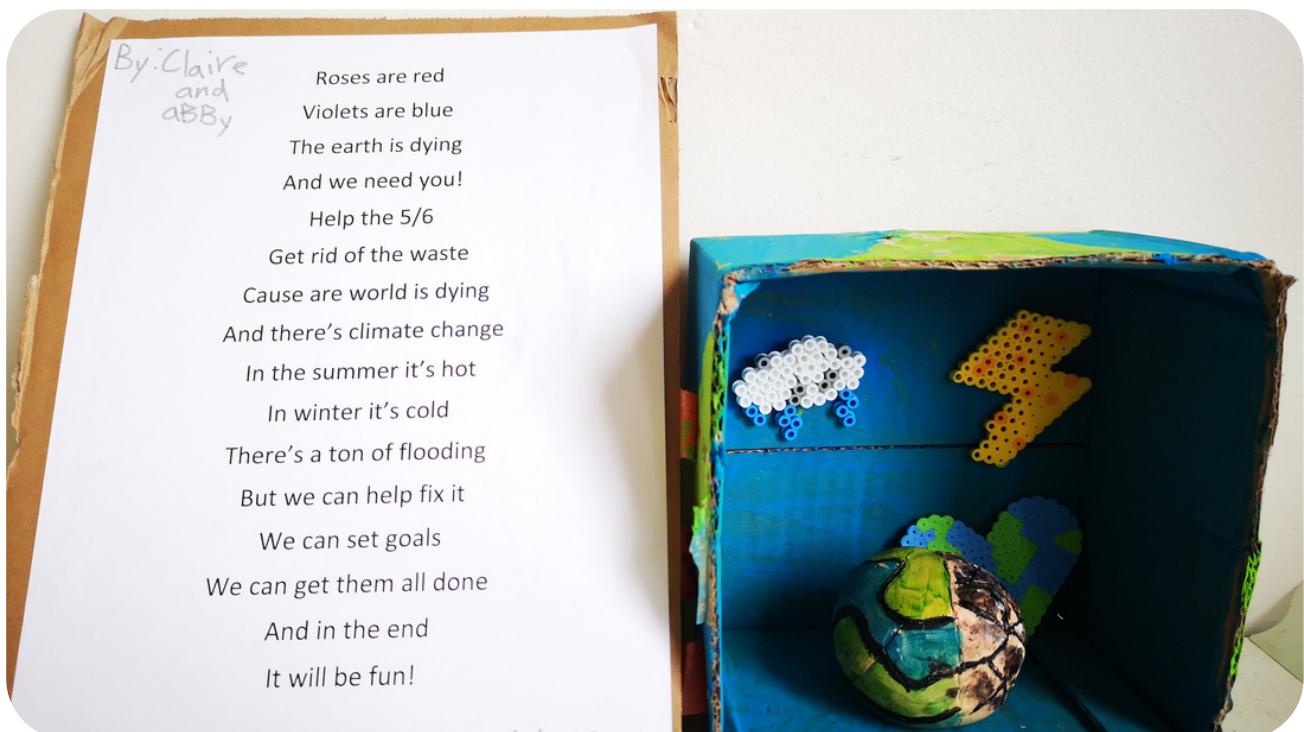 By: Claire
and
aBBy
Roses are red
Violets are blue
The earth is dying
And we need you!
Help the 5/6
Get rid of the waste
Cause are world is dying
And there's climate change
In the summer it's hot
In winter it's cold
There's a ton of flooding
But we can help fix it
We can set goals
We can get them all done
And in the end
It will be fun!